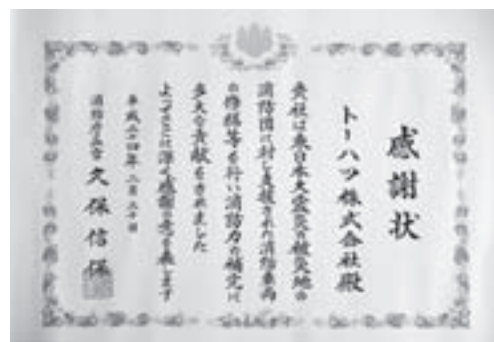 感謝状
トーハツ株式会社殿
貴社は東日本大震災の被災地の
消防団に対し支援された消防車両
の積載等を行い消防力の補完に
多大な貢献をされました
よってここに深く感謝の意を表します
平成二十四年二月二十日
消防庁長官 久保信保